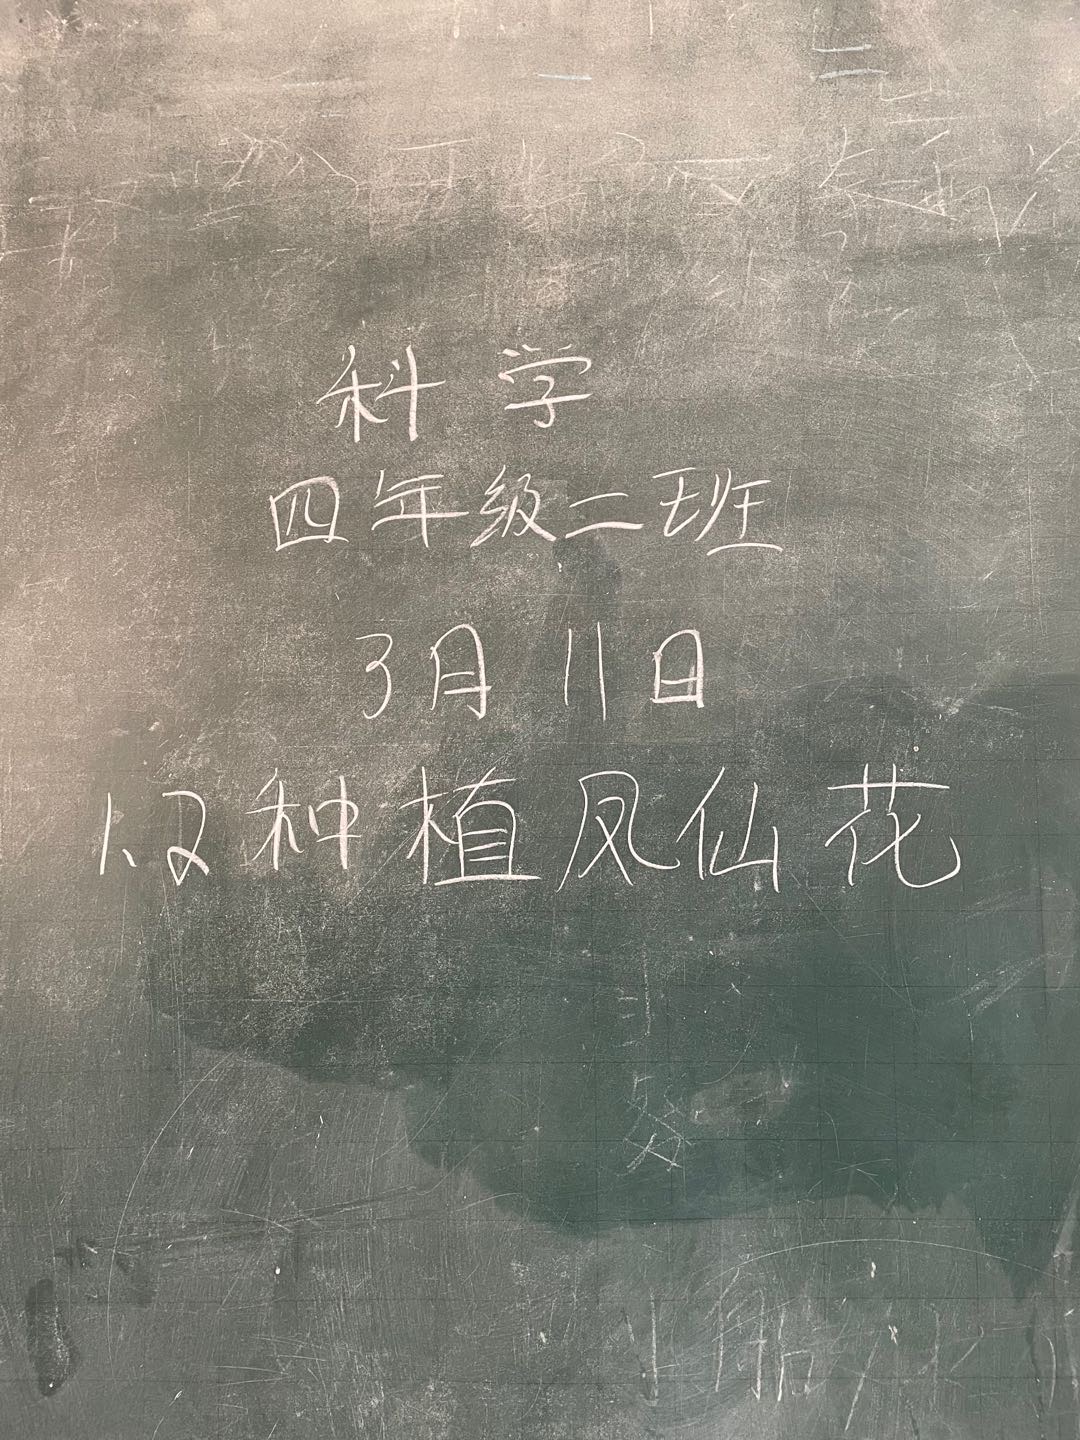 科学
四年级二班
3月11日
1.2种植凤仙花